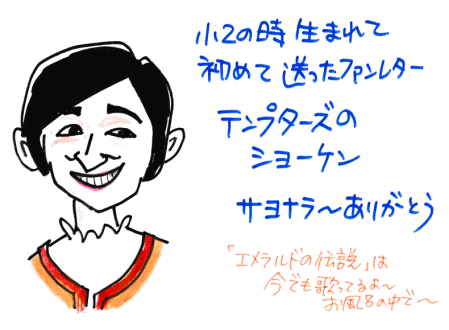 小2の時 生まれて
初めて 送ったファンレター
テンプターズの
ショーケン
サヨナラ〜ありがとう
「エメラルドの伝説」は
今でも歌ってるよ〜
お風呂の中で〜